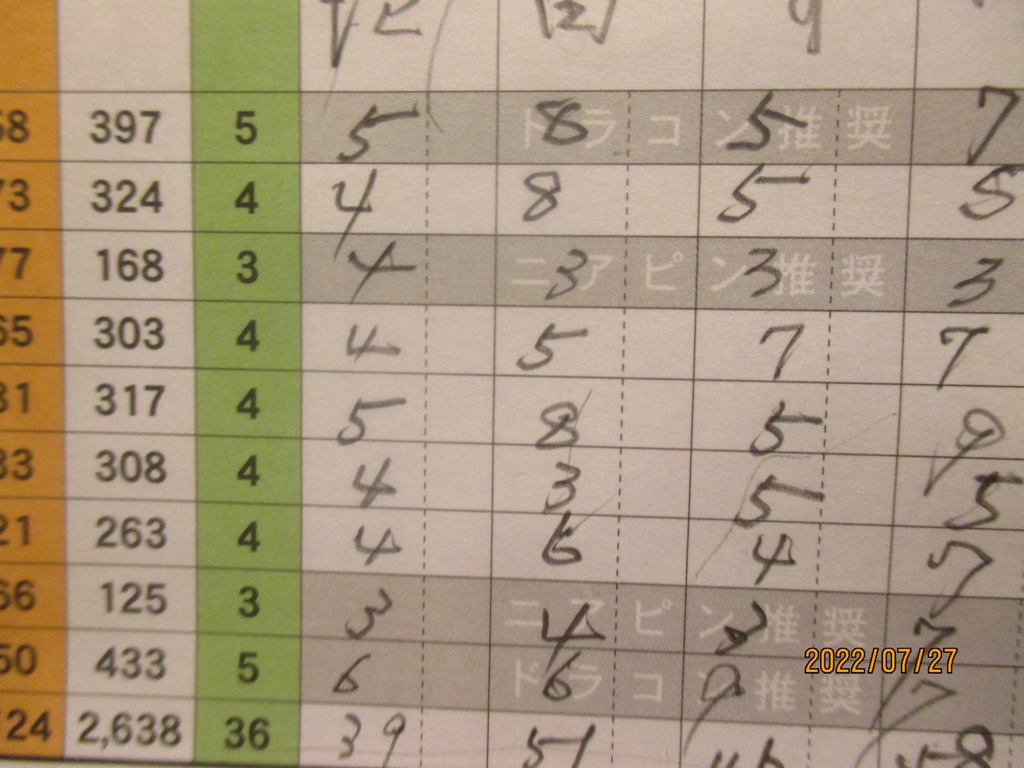 58 397 5 5 ドラコン推奨 8 5 7
73 324 4 4 8 5 5
77 168 3 4 ニアピン推奨 3 3 3
65 303 4 4 5 7 7
31 317 4 5 8 5 9
33 308 4 4 3 5 5
21 263 4 4 6 4 7
66 125 3 3 ニアピン推奨 4 3 7
50 433 5 6 ドラコン推奨 6 9 7
124 2,638 36 39 51
2022/07/27